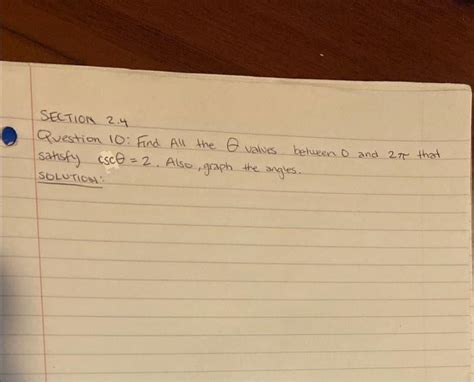 SECTION 2.4
Question 10: Find All the θ values between 0 and 2π that
satisfy cscθ = 2. Also, graph the angles.
SOLUTION: